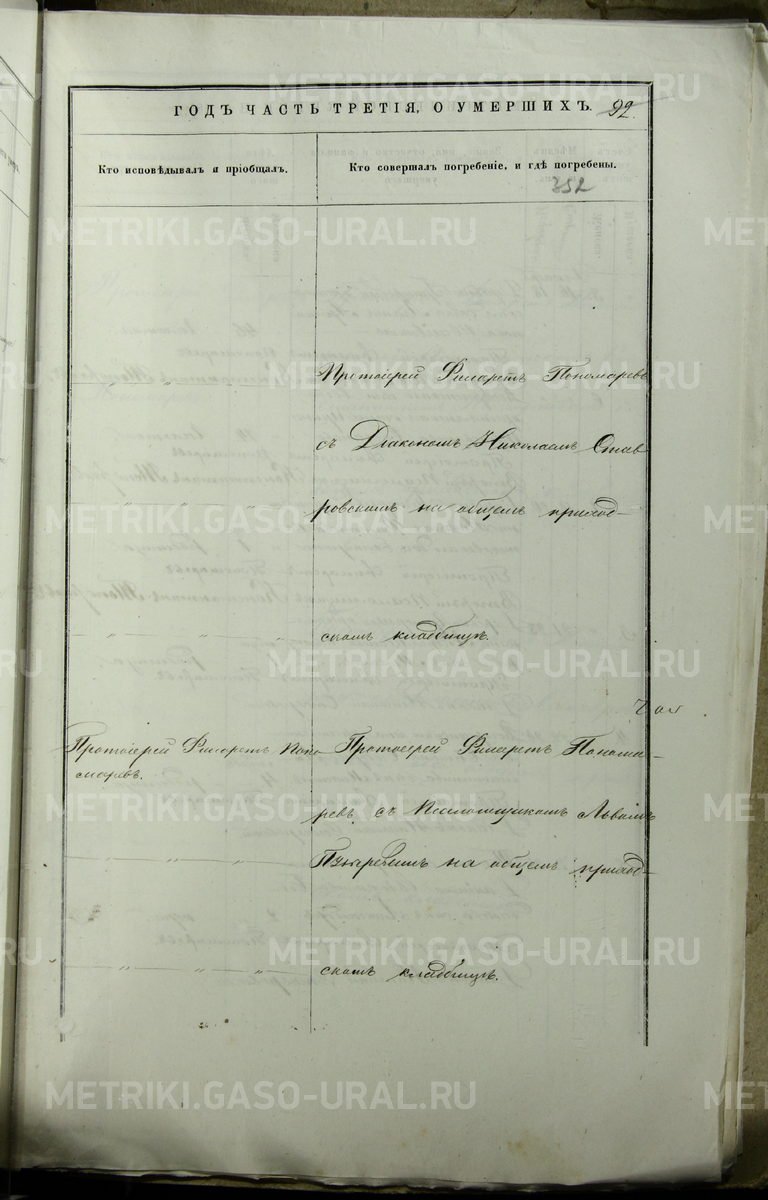 ГОДЪ ЧАСТЬ ТРЕТІЯ, О УМЕРШИХЪ. 92.
Кто исповѣдывалъ и пріобщалъ.
Кто совершалъ погребеніе, и гдѣ погребены.
352
Протоіерей Филаретъ Пономаревъ
съ Діакономъ Николаемъ Став
ровскимъ на общемъ приход-
скомъ кладбищѣ.
Протоіерей Филаретъ Поно
маревъ.
Протоіерей Филаретъ Понома-
ревъ съ Псаломщикомъ Львомъ
на общемъ приход-
скомъ кладбищѣ.
METRIKI.GASO-URAL.RU